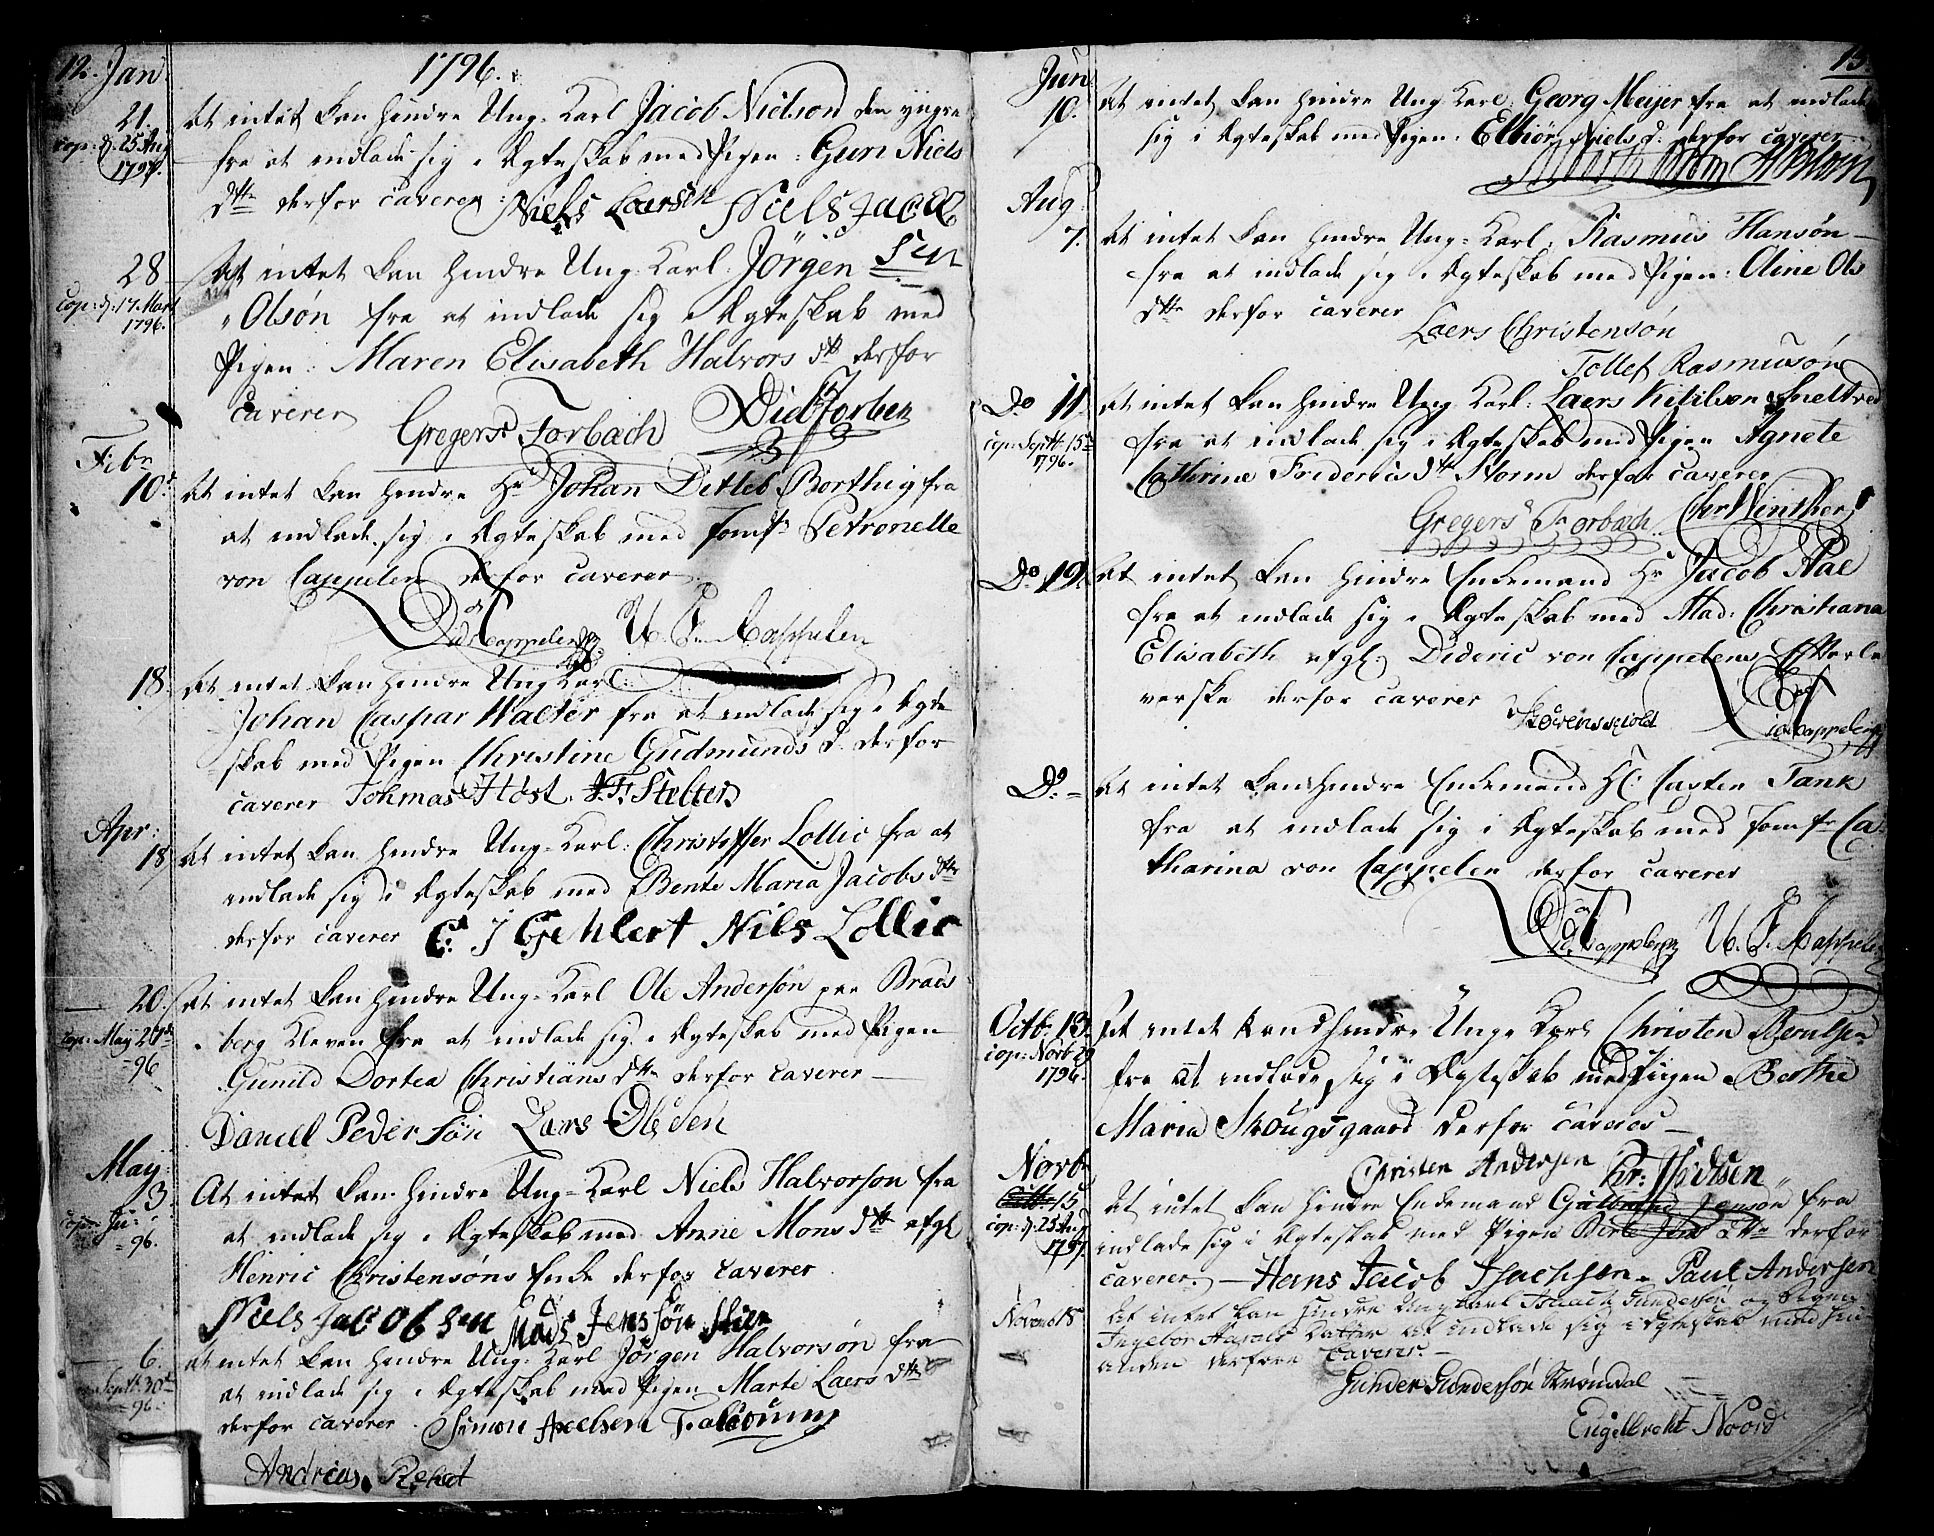 12. Jan
1796.
21. At intet kan hindre Ung-Karl Jacob Nielsøn den yngre
cop: d. 25 Aug 1797.
fra at indlade sig i Ægteskab med Pigen: Guri Niels
dtr derfor caverer Niels Larsen Niels Jacobs
28 At intet kan hindre Ung Karl: Jörgen
cop: d. 17. Mart 1796.
Olsön fra at indlade sig i Ægteskab med
Pigen: Maren Elisabeth Halvors dtr derfor
caverer Gregers Forbach Did Torben
Febr
10. At intet kan hindre Hr Johan Ditleb Borthig fra
at indlade sig i Ægteskab med Jomfr Petronelle
von Cappelen derfor caverer
Did v Cappelen U. F. v Cappelen
18. At intet kan hindre Ung Karl
Johan Caspar Walter fra at indlade sig i Ægte
skab med Pigen Christine Gudmunds d. derfor
caverer Tohmas Höst. J. F. Stelter
Apr:
18 At intet kan hindre Ung-Karl: Christoffer Lollic fra at
indlade sig i Ægteskab med Bente Maria Jacobs dtr
derfor caverer C: J Gehlert Nils Lollic
20. At intet kan hindre Ung-Karl Ole Andersön paa Brads
cop: May 20
berg Kleven fra at indlade sig i Ægteskab med Pigen
= 96
Gunild Dortea Christians dtr derfor caverer —
Daniel Peder Sön Lars Olsen
May
3. At intet kan hindre Ung-Karl Niels Halvorsøn fra
cop: Ju:
at indlade sig i Ægteskab med Anne Mons dtr afgl
= 96.
Henric Christensöns Enke derfor caverer
Niels Jacobsen Mads Jenssön
6. at intet kan hindre Ung-Karl Jörgen Halvorsön fra
Septb: 30
at indlade sig i Ægteskab med Pigen Marte Laers dtr
96.
derfor caverer Simon Axelsen
Andreas
13.
Jun
10. At intet kan hindre Ung Karl: Georg Meyer fra at indlade
sig i Ægteskab med Pigen: Elhiör Niels d: derfor caverer
Aug:
7. At intet kan hindre Ung-Karl: Rasmus Hansön
fra at indlade sig i Ægteskab med Pigen: Oline Ols
dtr derfor caverer
Laers Christensön
Tollef Rasmusön
Do 11. At intet kan hindre Ung Karl: Laers Kitilsøn Snelltved
cop: Septb: 15
fra at indlade sig i Ægteskab med Pigen Agnete
1796.
Cathrine Fredericsdtr Storm derfor caverer
Gregers Forbach Chr Winther
Do 19. At intet kan hindre Enkemand Hr Jacob Aae
fra at indlade sig i Ægteskab med Mad: Christiana
Elisabeth afgl: Dideric von Cappelens Efterle
verske derfor caverer
Did v Cappelen
Do — At intet kan hindre Enkemand H: Casten Tank
fra at indlade sig i Ægteskab med Jomfr Ca
tharina von Cappelen derfor caverer
Did v Cappelen U. F. v Cappelen
Octb: 13 At intet kand hindre Unge Karl Christen Berulsen
cop: Novb 29
fra at indlade sig i Ægteskab med Pigen Berthe
1796.
Maria Skougsgaard derfor caveres —
Christen Andersen
Novb
15 At intet kan hindre Enkemand Gulbrand Jensön fra
cop: d. 25 Aug
indlade sig i Ægteskab med Pigen Berte Jens dtr derfor
1797.
caverer. — Hans Jacob Isachsen. Paul Andersen
Novemb 18 At intet kan hindre Ungkarl Isaack Gundersön og Pigen
Ingebor at indlade sig i Ægteskab med hin
anden derfore Caverer. —
Gunder Gundersön Strömdal
Engelbreht Noord